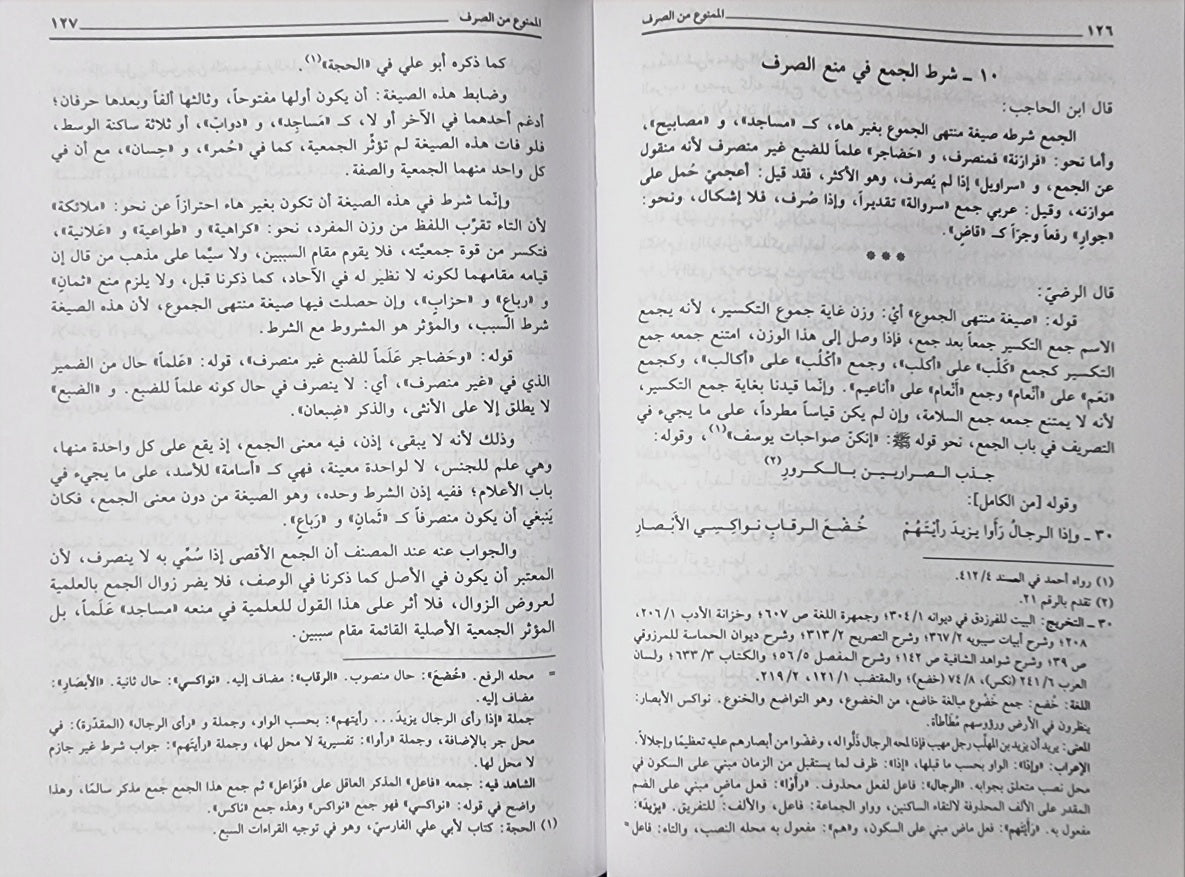 ١٢٦ الممنوع من الصرف
١٠ - شرط الجمع في منع الصرف
قال ابن الحاجب:
الجمع شرطه صيغة منتهى الجموع بغير هاء، كـ «مساجد»، و «مصابيح»،
وأما نحو: «فرازنة» فمنصرف، و «حَضاجر» علماً للضبع غير منصرف لأنه منقول
عن الجمع، و «سراويل» إذا لم يُصرف، وهو الأكثر، فقد قيل: أعجميّ حُمل على
موازنه، وقيل: عربي جمع «سروالة» تقديراً، وإذا صُرف، فلا إشكال، ونحو:
«جوارٍ» رفعاً وجرّاً كـ «قاضٍ».
***
قال الرضيّ:
قوله: «صيغة منتهى الجموع» أيْ: وزن غاية جموع التكسير، لأنه يجمع
الاسم جمع التكسير جمعاً بعد جمع، فإذا وصل إلى هذا الوزن، امتنع جمعه جمع
التكسير كجمع «كَلْب» على «أكلب»، وجمع «أكْلُب» على «أكالب»، وكجمع
«نَعَم» على «أنْعام» وجمع «أنْعام» على «أناعيم». وإنّما قيدنا بغاية جمع التكسير،
لأنه لا يمتنع جمعه جمع السلامة، وإن لم يكن قياساً مطرداً، على ما يجيء في
التصريف في باب الجمع، نحو قوله ﷺ: «إنكنّ صواحبات يوسف»(١)، وقوله:
جـذب الـصـراريـيـن بـالـكـرورِ(٢)
وقوله [من الكامل]:
٣٠ - وإذا الرجالُ رَأوا يزيدَ رأيتَهُمْ خُضُعَ الرقابِ نواكِسِي الأبْصارِ
(١) رواه أحمد في المسند ٤١٢/٤.
(٢) تقدم بالرقم ٢١.
٣٠ - التخريج: البيت للفرزدق في ديوانه ٣٠٤/١؛ وجمهرة اللغة ص ٦٠٧؛ وخزانة الأدب ٢٠٦/١،
٢٠٨؛ وشرح أبيات سيبويه ٣٦٧/٢؛ وشرح التصريح ٣١٣/٢؛ وشرح ديوان الحماسة للمرزوقي
ص ٣٩؛ وشرح شواهد الشافية ص ١٤٢؛ وشرح المفصل ٥٦/٥؛ والكتاب ٦٣٣/٣؛ ولسان
العرب ٢٤١/٦ (نكس)، ٧٤/٨ (خضع)؛ والمقتضب ١٢١/١، ٢١٩/٢.
اللغة: خُضُع: جمع خَضُوع مبالغة خاضع، من الخضوع، وهو التواضع والخنوع. نواكس الأبصار:
ينظرون في الأرض ورؤوسهم مُطَأطأة.
المعنى: يريد أن يزيد بن المهلّب رجل مهيب فإذا لمحه الرجال ذَلُّوا له، وغضّوا من أبصارهم عليه تعظيمًا وإجلالاً.
الإعراب: «وإذا»: الواو بحسب ما قبلها، «إذا»: ظرف لما يستقبل من الزمان مبني على السكون في
محل نصب متعلق بجوابه. «الرجال»: فاعل لفعل محذوف. «رَأَوْا»: فعل ماض مبني على الضم
المقدر على الألف المحذوفة لالتقاء الساكنين، وواو الجماعة: فاعل، والألف: للتفريق. «يزيدَ»:
مفعول به. «رَأيتَهم»: فعل ماض مبني على السكون، و«هم»: مفعول به محله النصب، والتاء: فاعل =
الممنوع من الصرف ١٢٧
كما ذكره أبو علي في «الحجة»(١).
وضابط هذه الصيغة: أن يكون أولها مفتوحاً، وثالثها ألفاً وبعدها حرفان؛
أدغم أحدهما في الآخر أو لا، كـ «مَساجِد»، و «دوابّ»، أو ثلاثة ساكنة الوسط،
فلو فات هذه الصيغة لم تؤثّر الجمعية، كما في «حُمر»، و «حِسان»، مع أن في
كل واحد منهما الجمعية والصفة.
وإنّما شرط في هذه الصيغة أن تكون بغير هاء احترازاً عن نحو: «ملائكة»
لأن التاء تقرّب اللفظ من وزن المفرد، نحو: «كراهية» و «طواعية» و «عَلانية»،
فتكسر من قوة جمعيتّه، فلا يقوم مقام السببين، ولا سيّما على مذهب من قال إن
قيامه مقامهما لكونه لا نظير له في الآحاد، كما ذكرنا قبل، ولا يلزم منع «ثمانٍ»
و «رباعٍ» و «حزابٍ»، وإن حصلت فيها صيغة منتهى الجموع، لأن هذه الصيغة
شرط السبب، والمؤثر هو المشروط مع الشرط.
قوله: «وحَضاجر عَلَماً للضبع غير منصرف»، قوله: «عَلماً» حال من الضمير
الذي في «غير منصرف»، أي: لا ينصرف في حال كونه علماً للضبع. و «الضبع»
لا يطلق إلا على الأنثى، والذكر «ضِبعان».
وذلك لأنه لا يبقى، إذن، فيه معنى الجمع، إذ يقع على كل واحدة منها،
وهي علم للجنس، لا لواحدة معينة، فهي كـ «أسامة» للأسد، على ما يجيء في
باب الأعلام؛ ففيه إذن الشرط وحده، وهو الصيغة من دون معنى الجمع، فكان
يَنبغي أن يكون منصرفاً كـ «ثَمانٍ» و «رَباعٍ».
والجواب عنه عند المصنف أن الجمع الأقصى إذا سُمِّي به لا ينصرف، لأن
المعتبر أن يكون في الأصل كما ذكرنا في الوصف، فلا يضر زوال الجمع بالعلمية
لعروض الزوال، فلا أثر على هذا القول للعلمية في منعه «مساجد» عَلَماً، بل
المؤثر الجمعية الأصلية القائمة مقام سببين.
= محله الرفع. «خُضعَ»: حال منصوب. «الرقاب»: مضاف إليه. «نواكسي»: حال ثانية. «الأبصَارِ»:
مضاف إليه.
جملة «إذا رأى الرجال يزيدَ... رأيتهم»: بحسب الواو، وجملة و «رأى الرجال» (المقدّرة): في
محل جر بالإضافة، وجملة «رأوا»: تفسيرية لا محل لها، وجملة «رأيتَهُم»: جواب شرط غير جازم
لا محل لها.
الشاهد فيه: جمعه «فاعل» المذكر العاقل على «فَوَاعل» ثم جمع هذا الجمع جمع مذكر سالمًا، وهذا
واضح في قوله: «نواكسي» فهو جمع «نواكس» وهذه جمع «ناكس».
(١) الحجة: كتاب لأبي علي الفارسيّ، وهو في توجيه القراءات السبع.